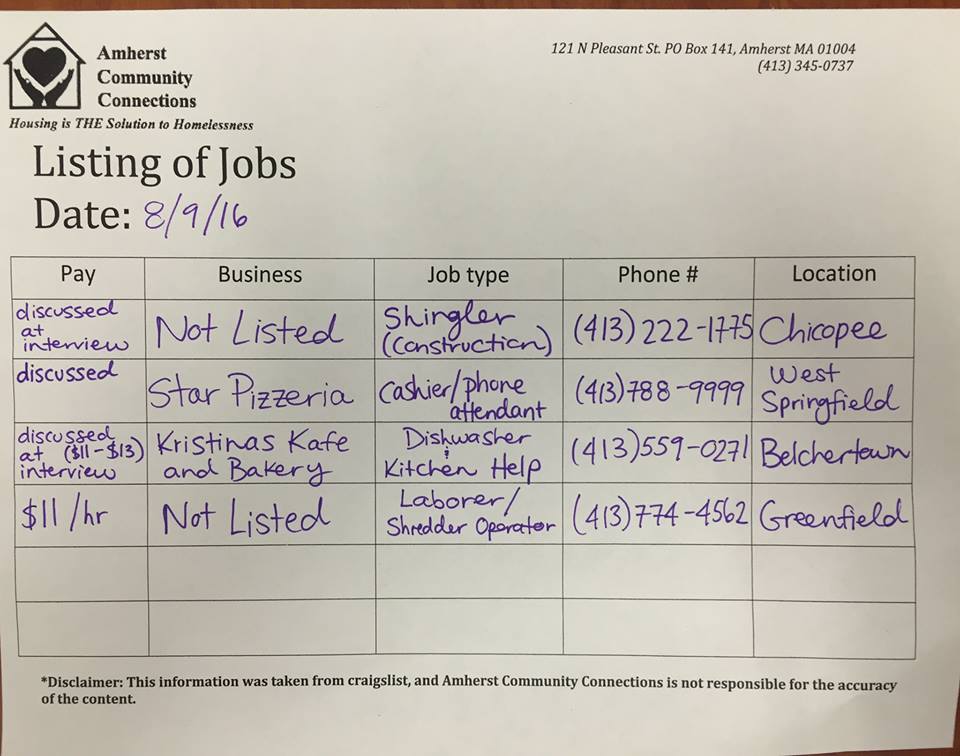 Amherst
Community
Connections
Housing is THE Solution to Homelessness
121 N Pleasant St. PO Box 141, Amherst MA 01004
(413) 345-0737
Listing of Jobs
Date: 8/9/16
Pay Business Job type Phone # Location
discussed
at
interview
Not Listed
Shingler
(Construction)
(413) 222-1775
Chicopee
discussed
Star Pizzeria
Cashier/phone
attendant
(413)788-9999
West
Springfield
discussed
at ($11-$13)
interview
Kristinas Kafe
and Bakery
Dishwasher
&
Kitchen Help
(413)559-0271
Belchertown
$11/hr
Not Listed
Laborer/
Shredder Operator
(413)774-4562
Greenfield
*Disclaimer: This information was taken from craigslist, and Amherst Community Connections is not responsible for the accuracy
of the content.